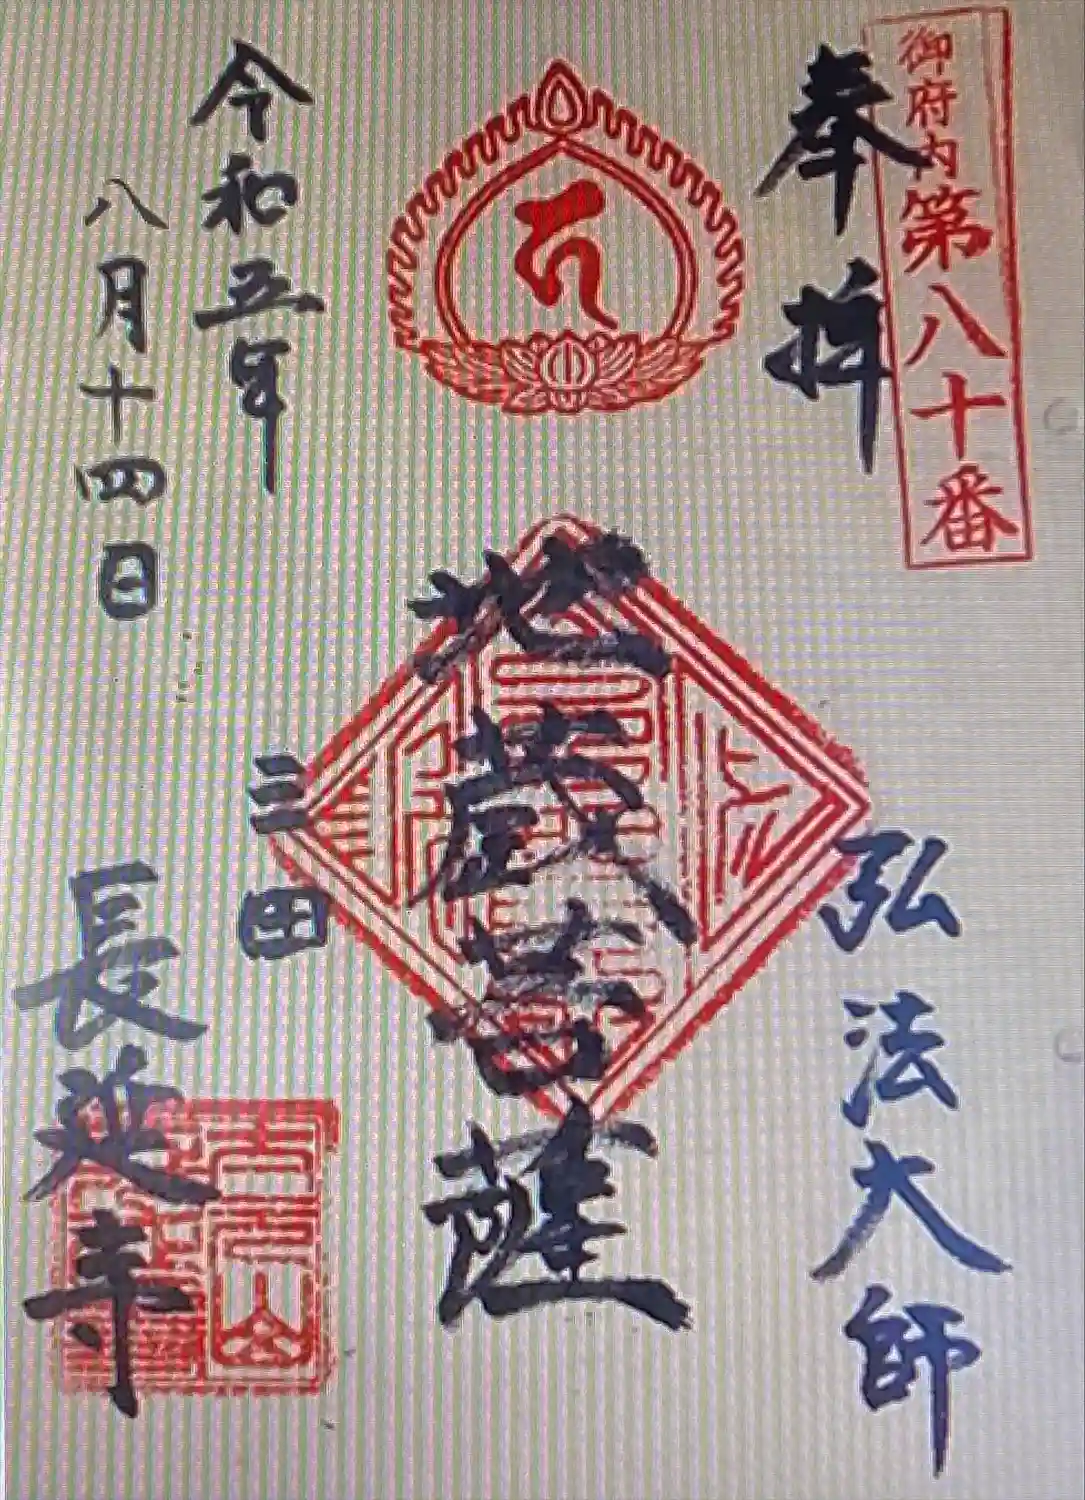 御府内第八十番
奉拝
弘法大師
地蔵菩薩
三田
令和五年
八月十四日
長延寺